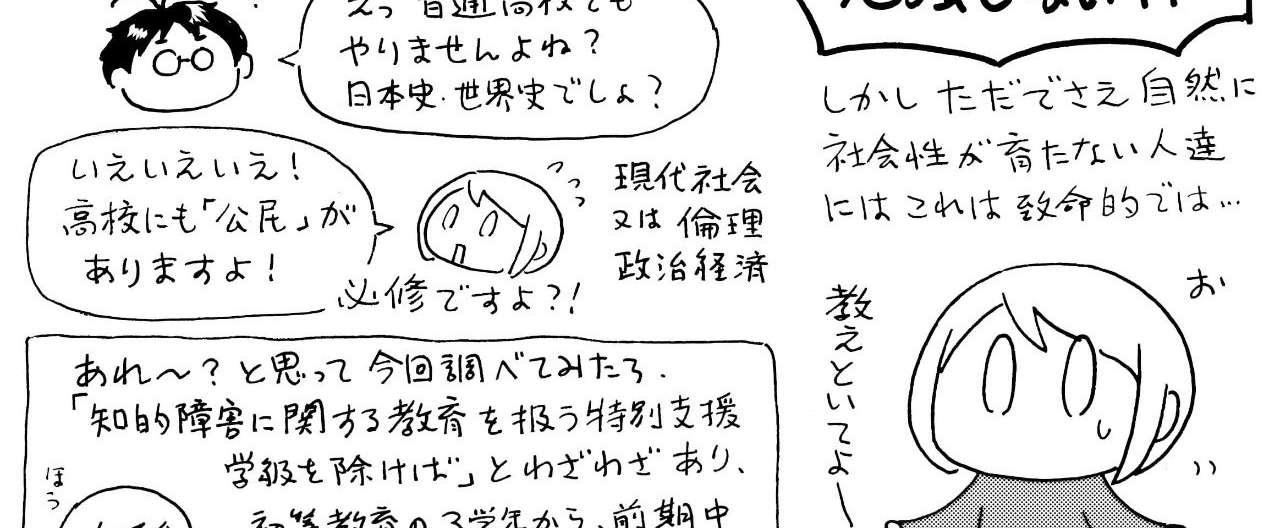 普通高校でも
やりませんよね?
日本史・世界史でしょ?
いえいえいえ!
高校にも「公民」が
ありますよ!
必修ですよ?!
現代社会
又は倫理
政治経済
あれ〜?と思って今回調べてみたら、
「知的障害に関する教育を扱う特別支援
学級を除けば」とわざわざあり、
ほう
初等教育の3学年から、前期中
しかしただでさえ自然に
社会性が育たない人達
にはこれは致命的では…
教えといてよー
お